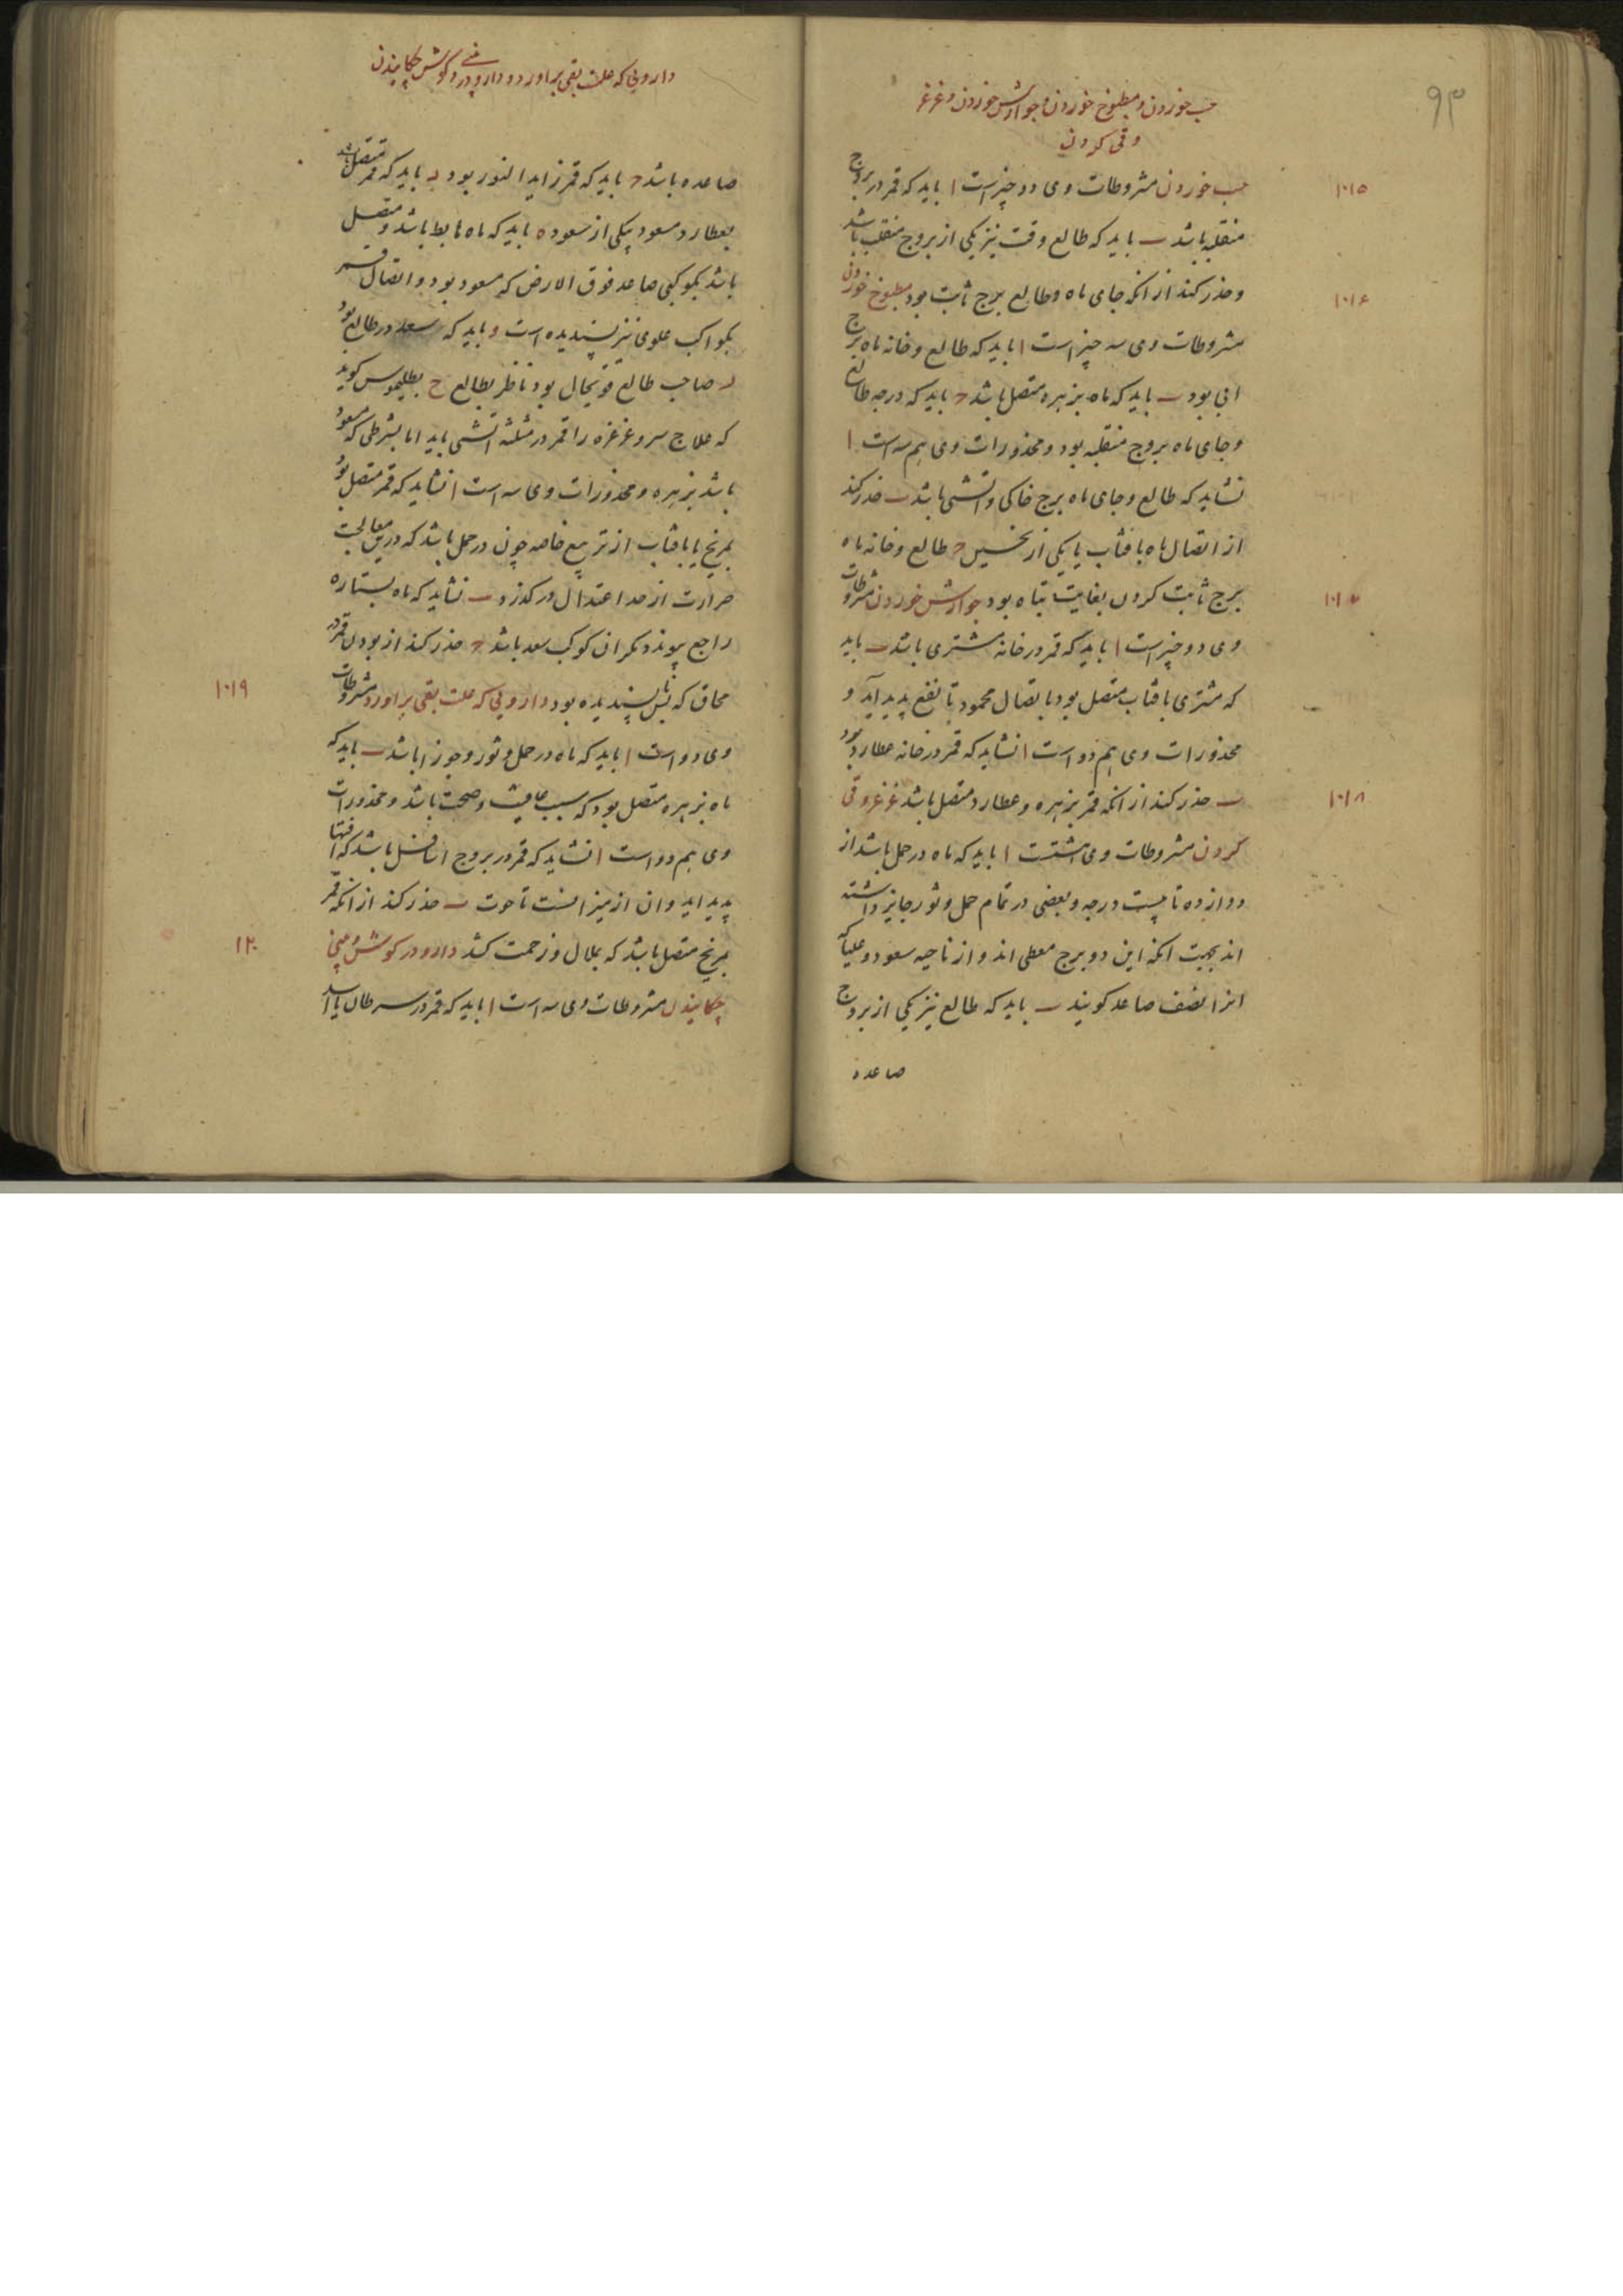 ۹۳
حب خوردن و مطبوخ خوردن و جوارش خوردن و غرغره
و قی کردن
۱۰۱۵
حب خوردن مشروطات وی دو چیز است ا باید که قمر در بروج
منقلبه باشد ب باید که طالع وقت نیز یکی از بروج منقلب باشد
۱۰۱۶
و حذر کند از انکه جای ماه و طالع برج ثابت بود مطبوخ خوردن
مشروطات وی سه چیز است ا باید که طالع و خانه ماه برج
ابی بود ب باید که ماه بزهره متصل باشد ج باید که درجه طالع
و جای ماه بروج منقلبه بود و محذورات وی هم سه است ا
نشاید که طالع و جای ماه برج خاکی و اتشی باشد ب حذر کند
از اتصال ماه بافتاب یا یکی از نحسین ج طالع و خانه ماه
۱۰۱۷
برج ثابت کردن بغایت تباه بود جوارش خوردن مشروطات
وی دو چیز است ا باید که قمر در خانه مشتری باشد ب باید
که مشتری بافتاب متصل بود باتصال محمود تا نفع پدید آید و
محذورات وی هم دو است ا نشاید که قمر در خانه عطارد بود
۱۰۱۸
ب حذر کند از انکه قمر بزهره و عطارد متصل باشد غرغره و قی
کردن مشروطات وی هشتست ا باید که ماه در حمل باشد از
دوازده تا بیست درجه و بعضی در تمام حمل و ثور جایز داشته
اند بجهت انکه این دو برج معطی اند و از ناحیه سعود و علیاکه
انرا نصف صاعد کویند ب باید که طالع نیز یکی از بروج
صاعده
دارویی که علت بقی براورد و دارو در کوش و بینی چکانیدن
صاعده باشد ج باید که قمر زاید النور بود د باید که قمر متصل باشد
بعطارد مسعود بیکی از سعود ه باید که ماه هابط باشد و متصل
باشد بکوکبی صاعد فوق الارض که مسعود بود و اتصال قمر
بکواکب علوی نیز پسندیده است و باید که سعد در طالع بود
ز صاحب طالع قویحال بود ناظر بطالع ح بطلیموس کوید
که علاج سر و غرغره را قمر در مثلثه اتشی باید اما بشرطی که مسعود
باشد بزهره و محذورات وی سه است ا نشاید که قمر متصل بود
بمریخ یا بافتاب از تربیع خاصه چون در حمل باشد که درین معالجت
حرارت از حد اعتدال در کذرد ب نشاید که ماه بستاره
راجع پیوندد مکر ان کوکب سعد باشد ج حذر کند از بودن قمر در
۱۰۱۹
محاق که ناپسندیده بود دارویی که علت بقی براورد مشروطات
وی دو است ا باید که ماه در حمل و ثور و جوزا باشد ب باید که
ماه بزهره متصل بود که سبب عافیت و صحت باشد و محذورات
وی هم دو است ا نشاید که قمر در بروج اسافل باشد که افتها
پدید اید و ان از میزانست تا حوت ب حذر کند از انکه قمر
۱۰۲۰
بمریخ متصل باشد که بملال و زحمت کشد دارو در کوش و بینی
چکانیدن مشروطات وی سه است ا باید که قمر در سرطان یا اسد